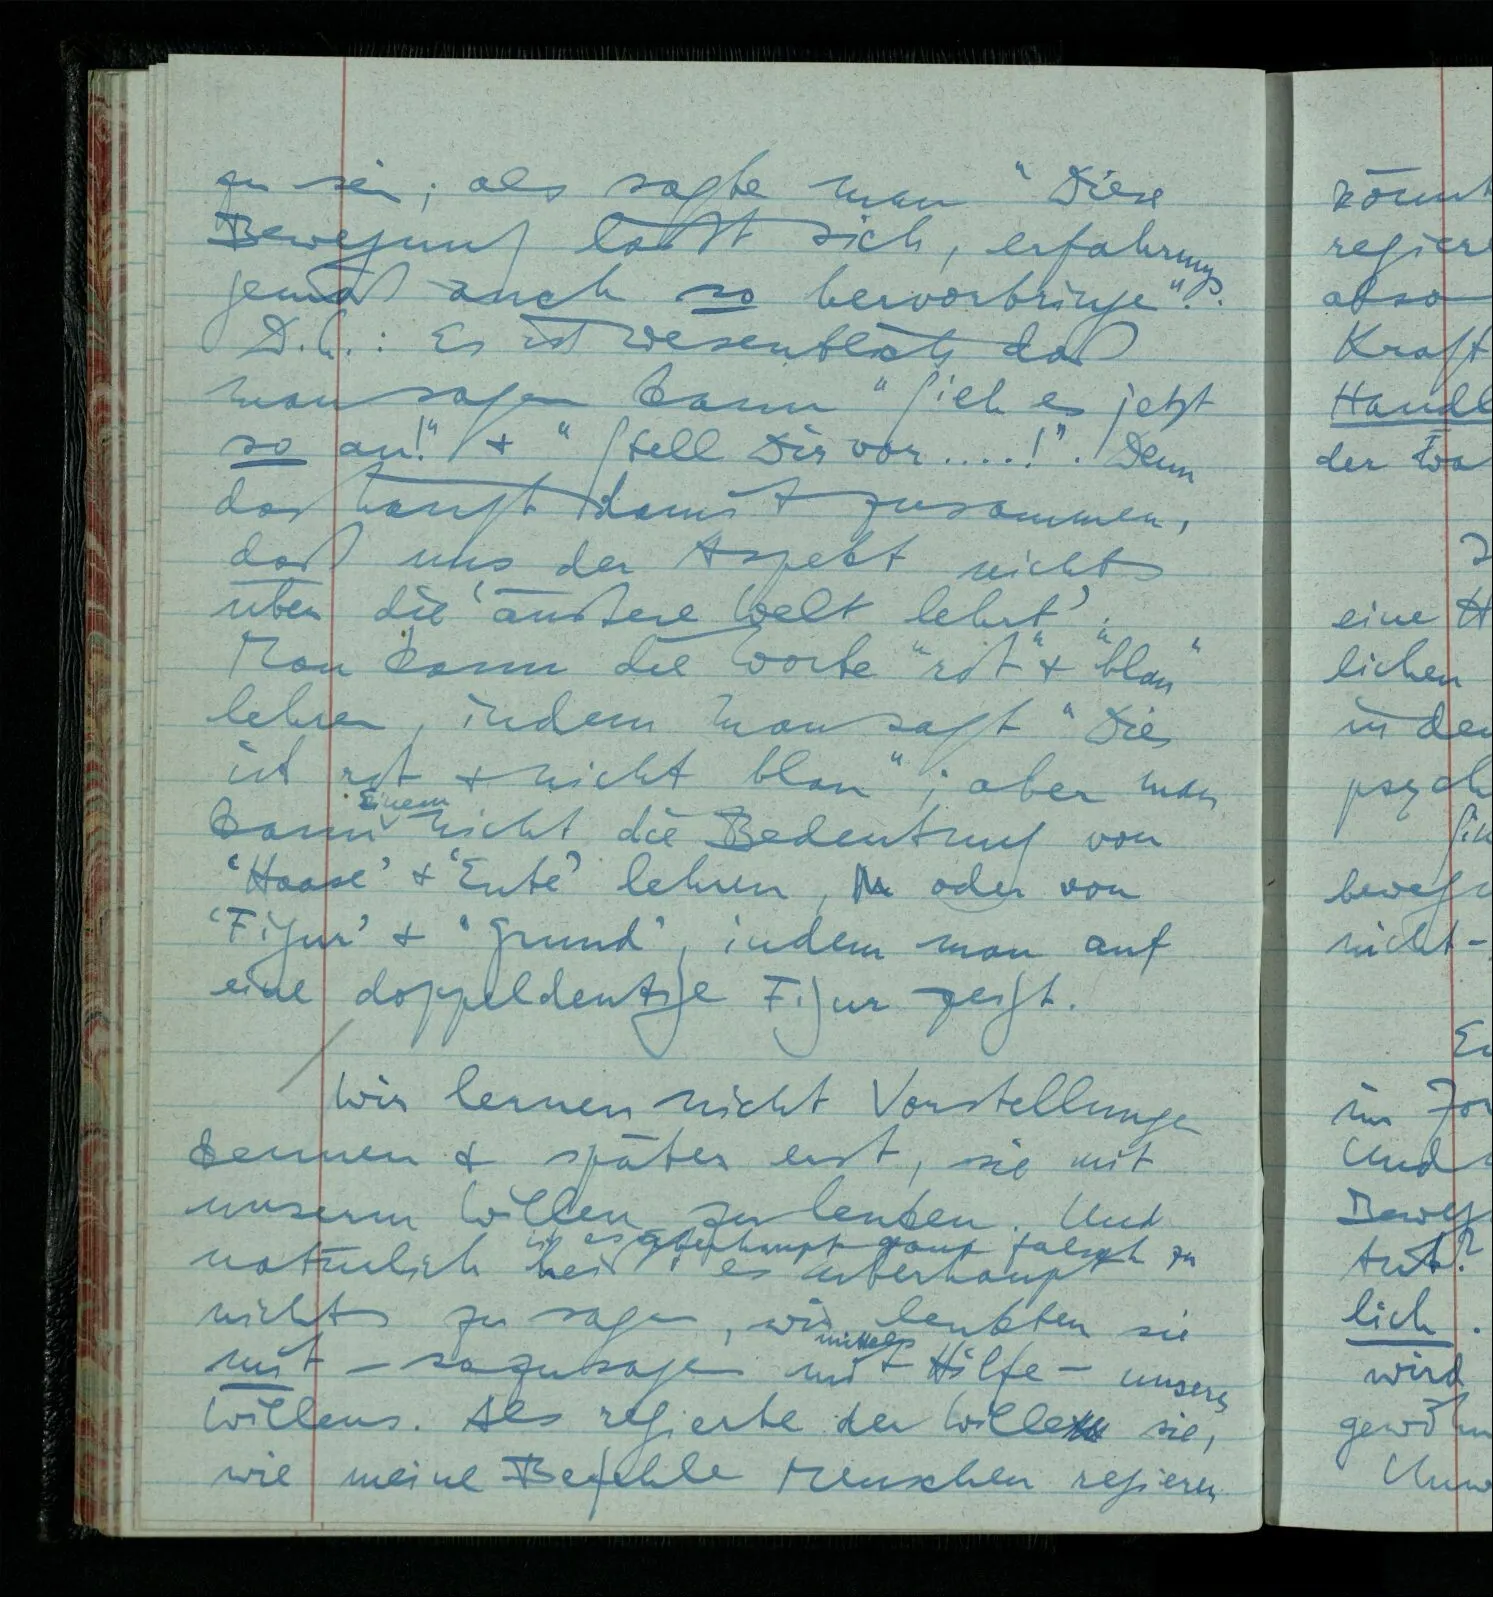 zu sein; als sagte man "Diese
Bewegung läßt sich, erfahrungs
gemäß auch so hervorbringen".
D.h.: Es ist wesentlich daß
man sagen kann "Sieh es jetzt
so an!" & "Stell Dir vor ....!". Denn
das hängt damit zusammen,
daß uns der Aspekt nichts
über die 'äußere Welt lehrt'.
Man kann die Worte "rot" & "blau"
lehren, indem man sagt "Dies
ist rot & nicht blau"; aber man
kann Einem nicht die Bedeutung von
'Haase' & 'Ente' lehren, oder von
'Figur' & 'Grund', indem man auf
eine doppeldeutige Figur zeigt.
Wir lernen nicht Vorstellungen
kennen & später erst, sie mit
unserm Willen zu lenken. Und
ist es überhaupt ganz falsch zu
natürlich heißt es überhaupt
nichts zu sagen, wir lenkten sie
mittels
mit – sozusagen mit Hilfe – unseres
Willens. Als regierte der Wille sie,
wie meine Befehle Menschen regieren
könnt
regiere
also
Kraft
Handl
der Wa
eine H
lichen
in de
psych
bewegu
nicht-
im
Und
Beweg
tut?
lich.
wird
gewöhn